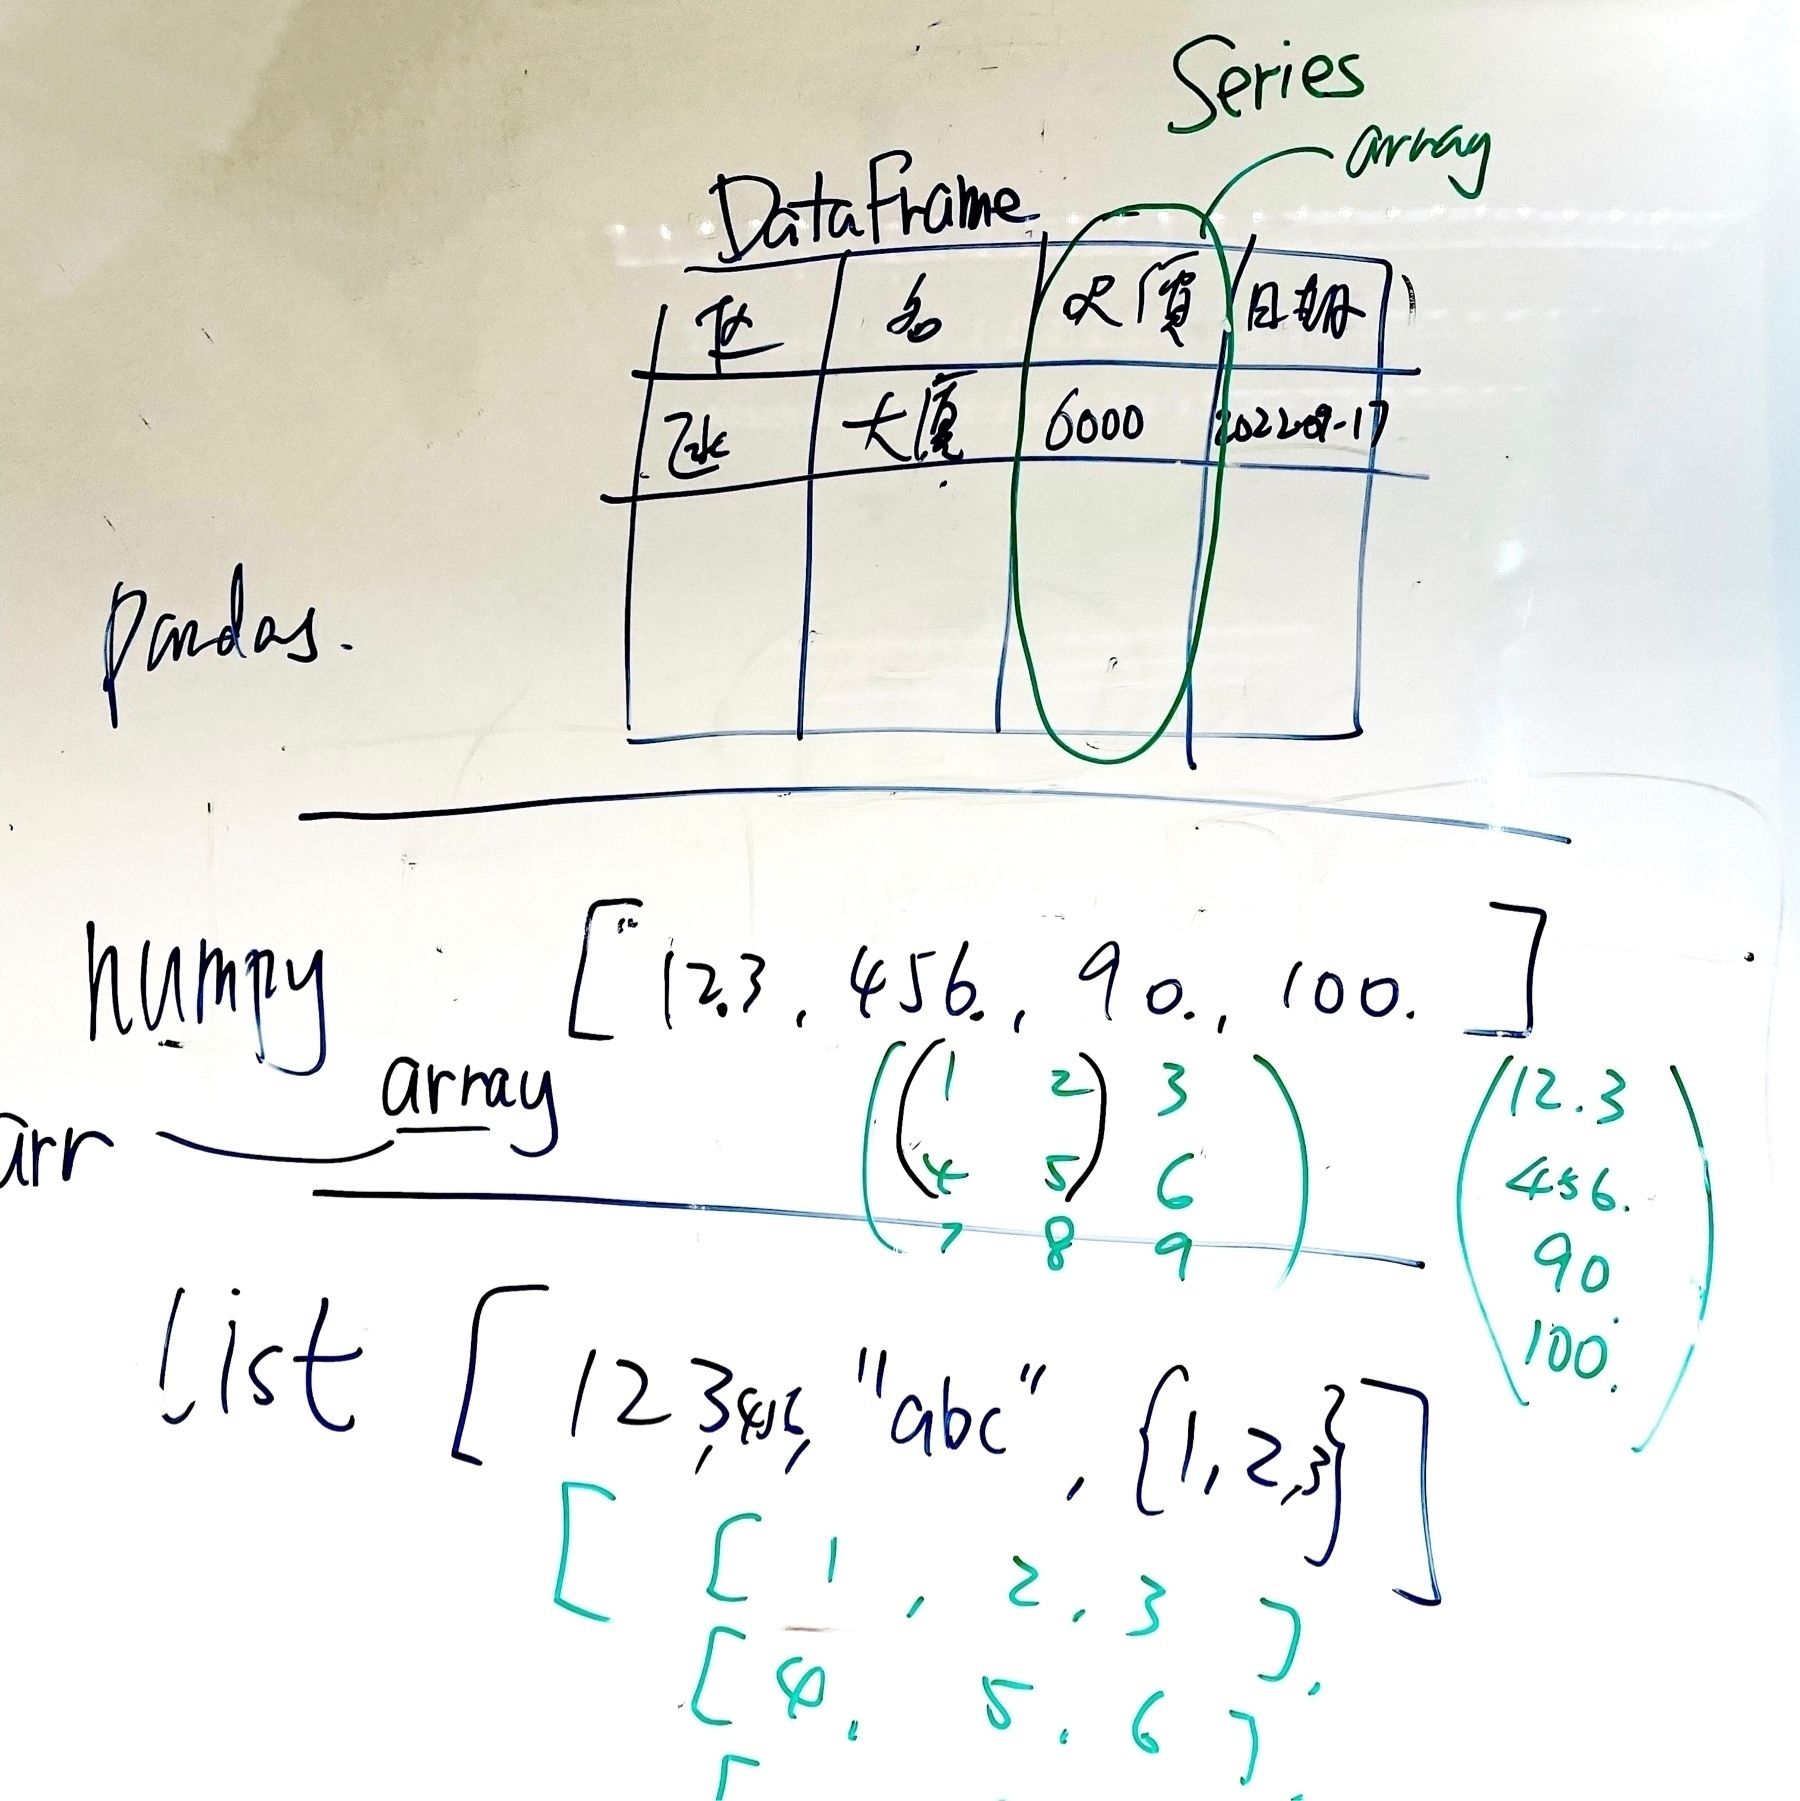 Series
array
DataFrame
区 名 尺價 日期
大廈 6000 2022-09-17
pandas.
numpy [12.3, 456., 90., 100. ]
array
arr
1 2 3
4 5 6
7 8 9
12.3
456.
90
100.
list [123, 456, "abc", {1,2,3}]
[ [ 1, 2, 3 ],
[ 4, 5, 6 ]
[